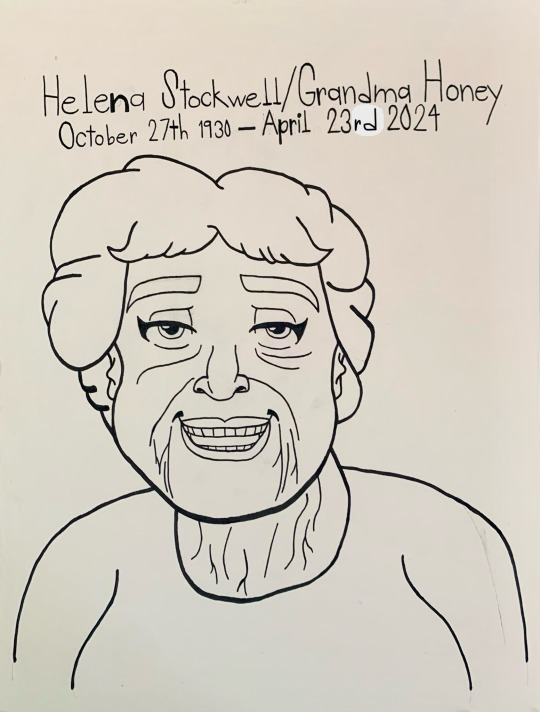 Helena Stockwell/Grandma Honey
October 27th 1930 — April 23rd 2024